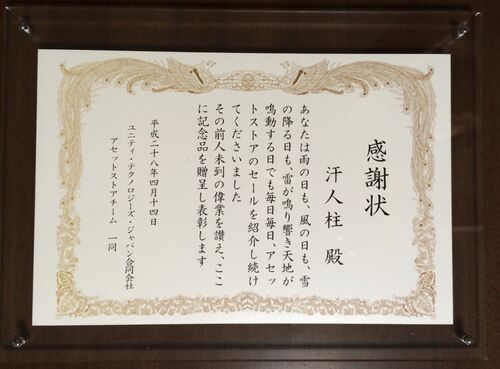 感謝状
汗人柱 殿
あなたは雨の日も、風の日も、雪
の降る日も、雷が鳴り響き天地が
鳴動する日でも毎日毎日、アセッ
トストアのセールを紹介し続け
てくださいました
その前人未到の偉業を讃え、ここ
に記念品を贈呈し表彰します
平成二十八年四月十四日
ユニティ・テクノロジーズ・ジャパン合同会社
アセットストアチーム 一同